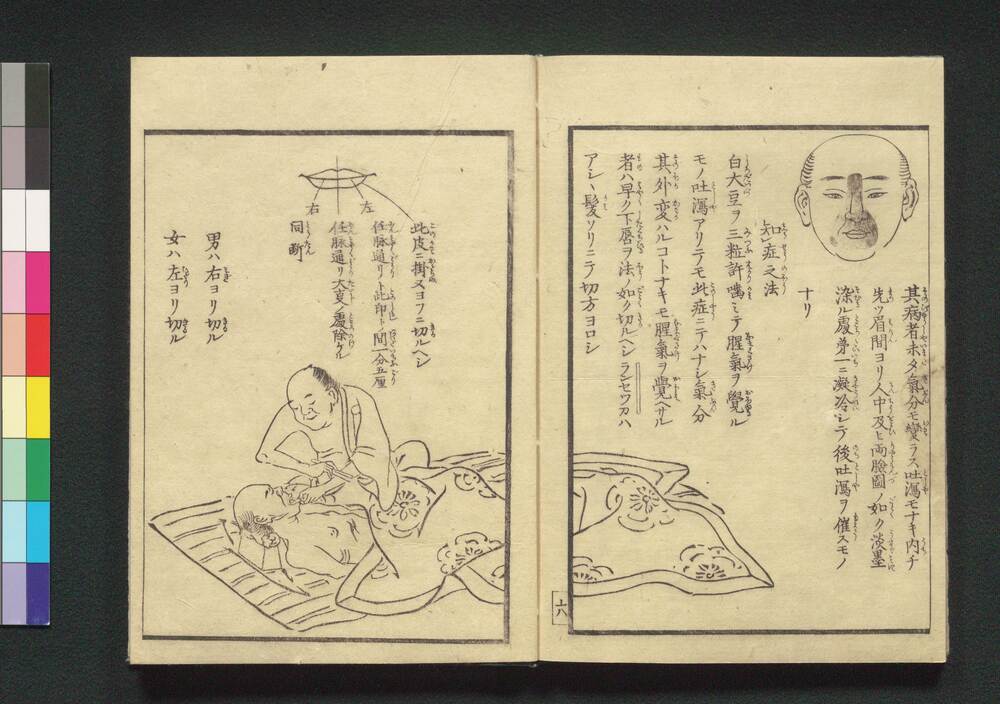 其病者未タ氣分モ變ラス吐瀉モナキ内チ
先ツ眉間ヨリ人中及ヒ両臉圖ノ如ク淡墨
染ル處第一ニ凝冷シテ後吐瀉ヲ催スモノ
ナリ
知症之法
白大豆ヲ三粒許噛ミテ腥氣ヲ覺ル
モノ吐瀉アリテモ此症ニテハナシ氣分
其外変ハルコトナキモ腥氣ヲ覺ヘサル
者ハ早ク下唇ヲ法ノ如ク切ルヘシ
アシ丶髪ソリニテ切方ヨロシ
六
左
右
此皮ニ掛ヨフニ切ルヘシ
任脉通リト此印ト間一分五厘
任脉通リ大支ノ處除ケル
同断
男ハ右ヨリ切ル
女ハ左ヨリ切ル